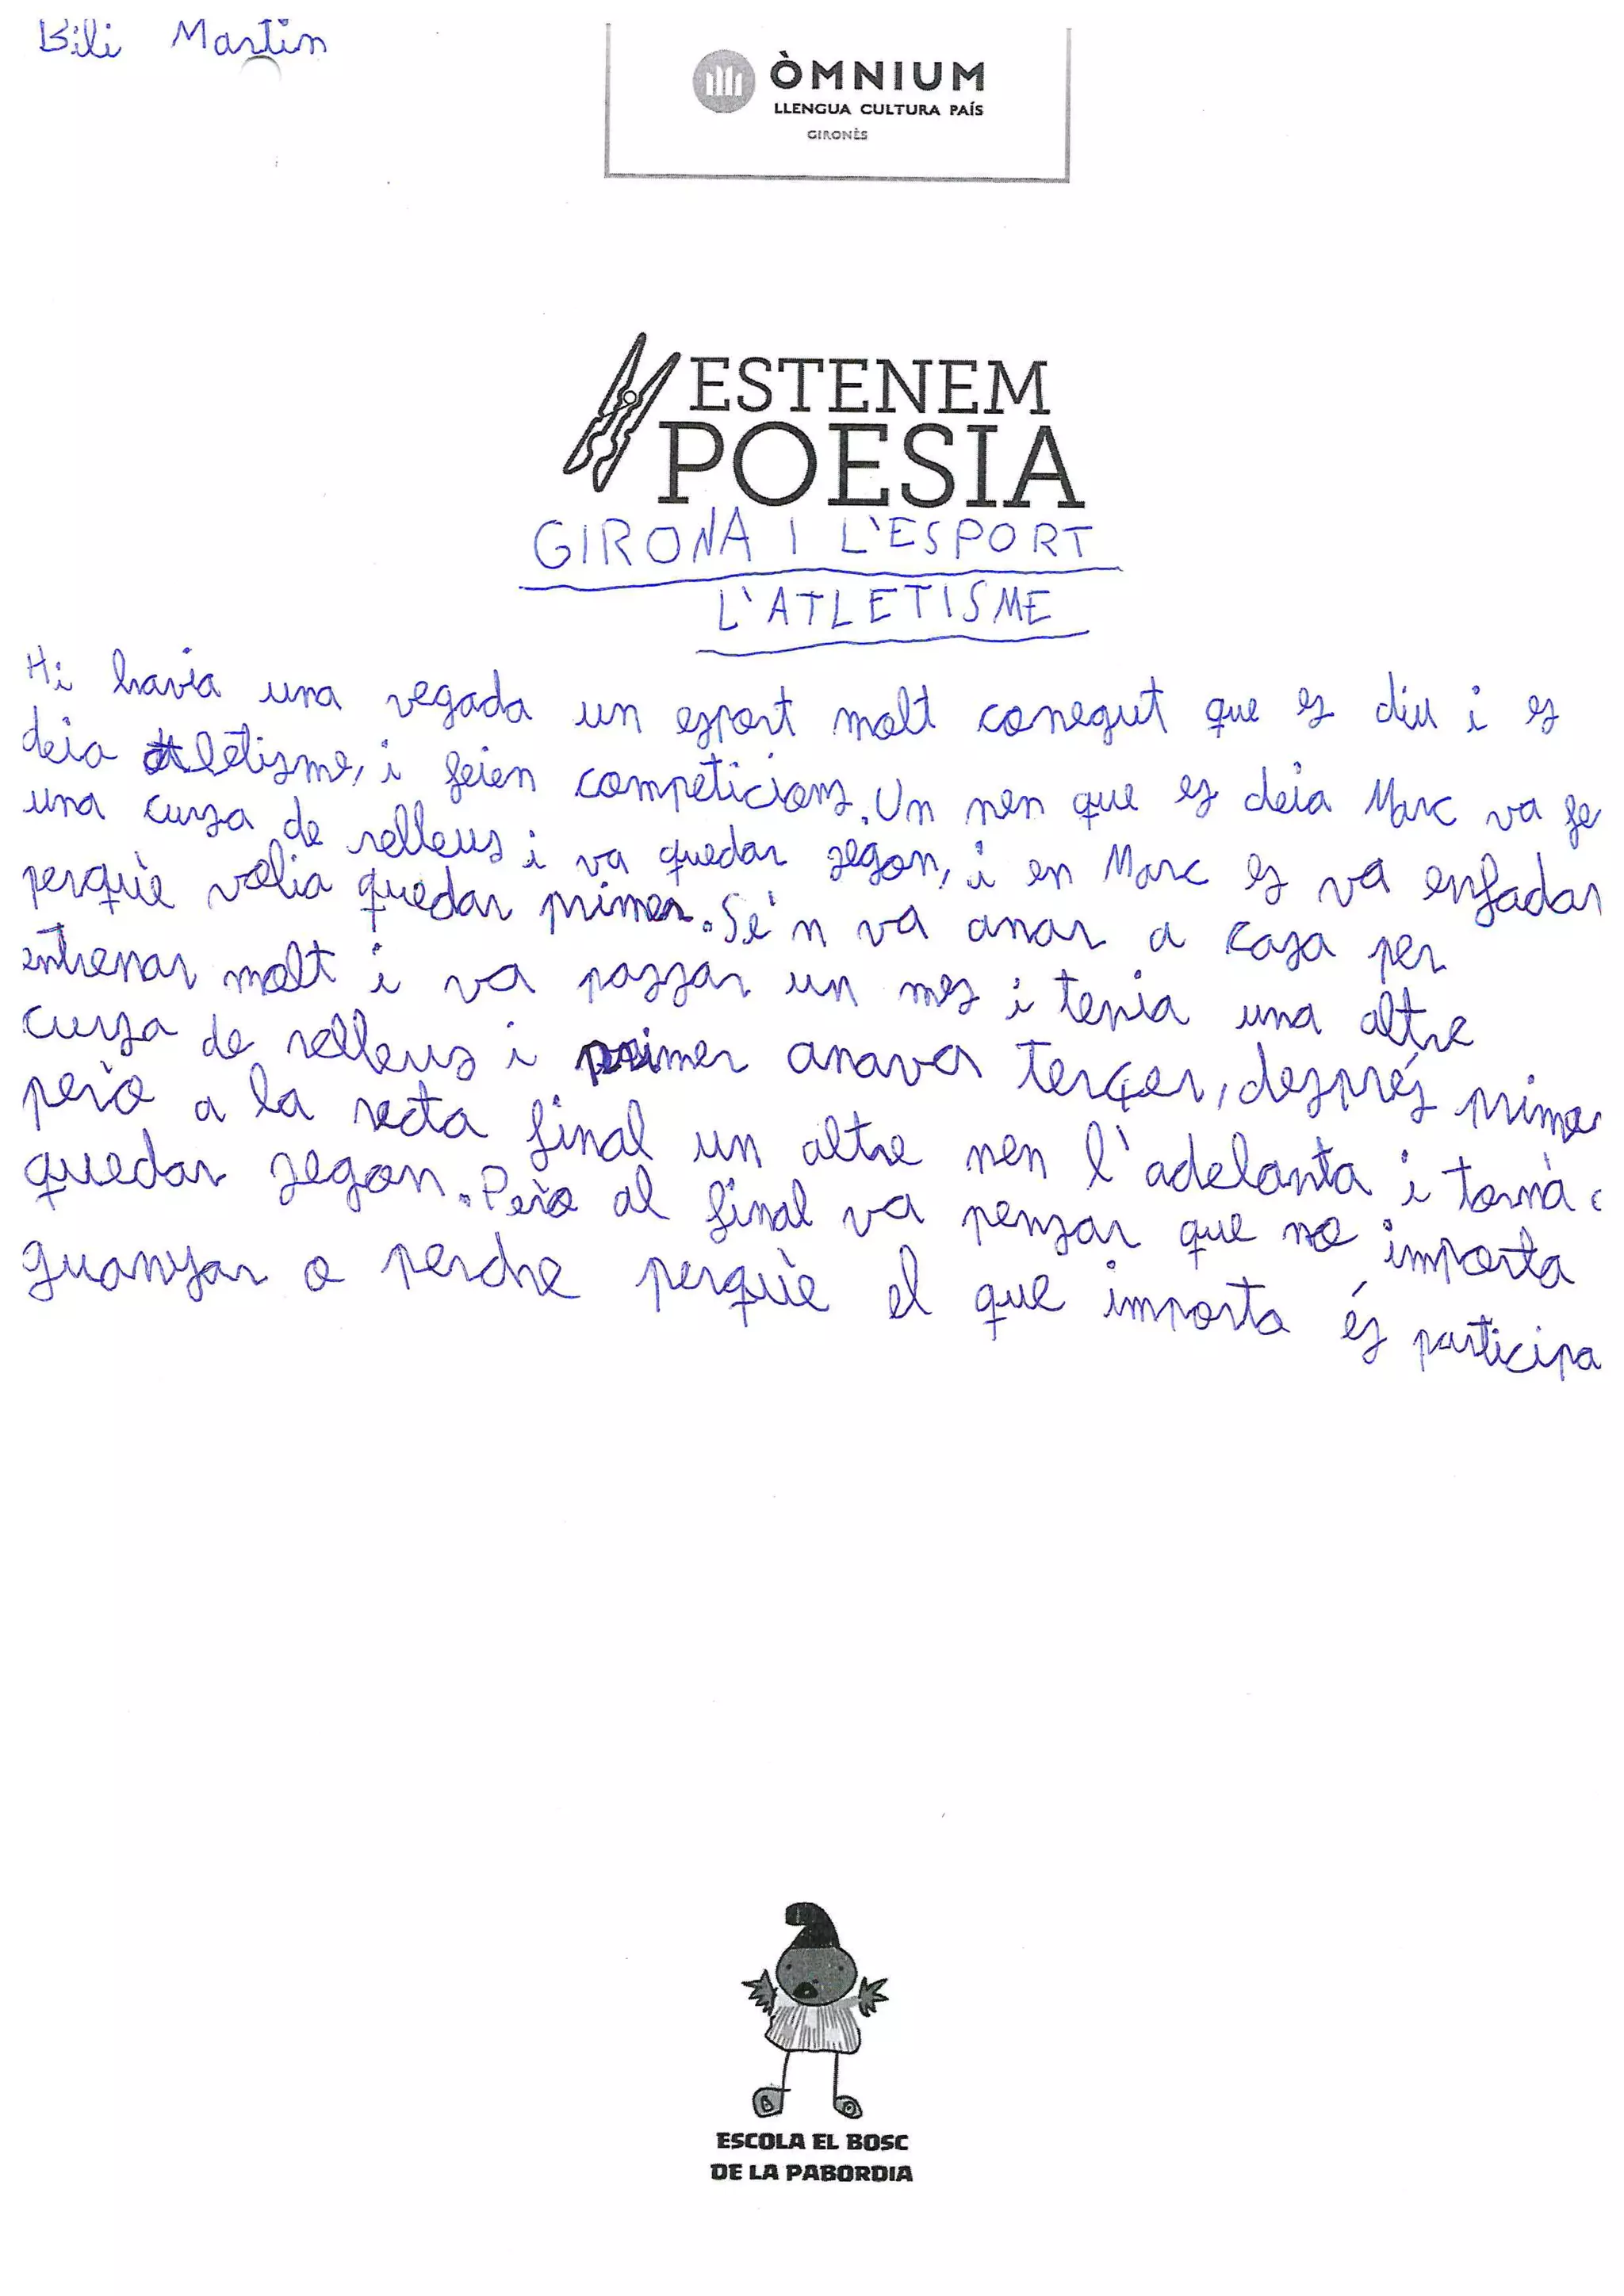 Bili Martin
ÒMNIUM
LLENGUA CULTURA PAÍS
GIRONÈS
ESTENEM
POESIA
GIRONA I L'ESPORT
L'ATLETISME
Hi havia una vegada un esport molt conegut que es diu i es
deia atletisme, i feien competicions. Un nen que es deia Marc va fe
una cursa de relleus i va quedar segon, i en Marc es va enfadar
perquè volia quedar primer. Se'n va anar a casa per
entrenar molt i va passar un mes i tenia una altre
cursa de relleus i primer anava terçer, després prime
però a la recta final un altre nen l'adelanta i tornà
quedar segon. Però al final va pensar que no importa
guanyar o perdre perquè el que importa és participa
ESCOLA EL BOSC
DE LA PABORDIA